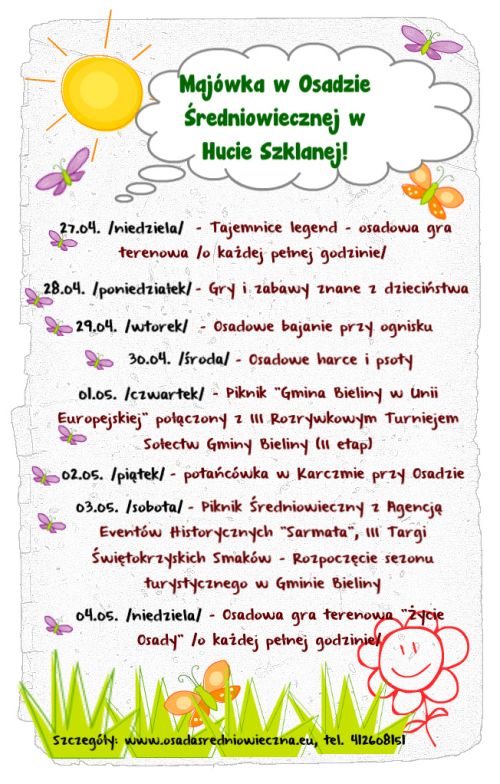 Majówka w Osadzie
Średniowiecznej w
Hucie Szklanej!
27.04. /niedziela/ - Tajemnice legend - osadowa gra
terenowa /o każdej pełnej godzinie/
28.04. /poniedziałek/ - Gry i zabawy znane z dzieciństwa
29.04. /wtorek/ - Osadowe bajanie przy ognisku
30.04. /środa/ - Osadowe harce i psoty
01.05. /czwartek/ - Piknik "Gmina Bieliny w Unii
Europejskiej" połączony z III Rozrywkowym Turniejem
Sołectw Gminy Bieliny (II etap)
02.05. /piątek/ - potańcówka w Karczmie przy Osadzie
03.05. /sobota/ - Piknik Średniowieczny z Agencją
Eventów Historycznych "Sarmata", III Targi
Świętokrzyskich Smaków - Rozpoczęcie sezonu
turystycznego w Gminie Bieliny
04.05. /niedziela/ - Osadowa gra terenowa "Życie
Osady" /o każdej pełnej godzinie/
Szczegóły: www.osadasredniowieczna.eu, tel. 412608151